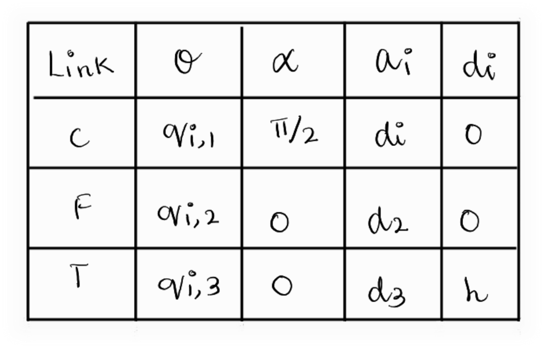 Link θ α ai di
C qi,1 π/2 di 0
F qi,2 0 d2 0
T qi,3 0 d3 h